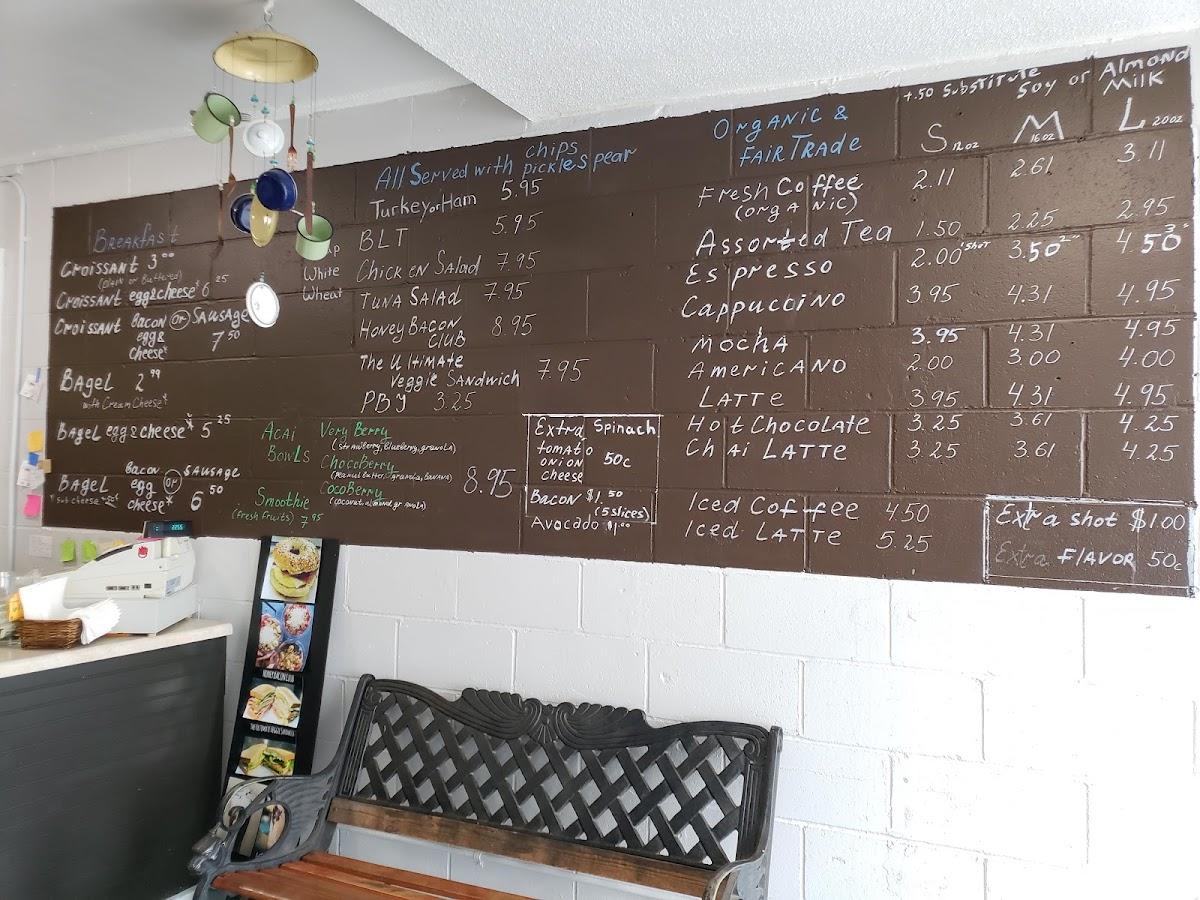 Breakfast
Croissant 3.00
(plain or Buttered)
Croissant egg&cheese* 6 25
Croissant bacon or Sausage
egg&
cheese* 7 50
Bagel 2 99
with Cream Cheese*
Bagel egg&cheese* 5 25
Bagel bacon or Sausage
egg
cheese* 6 50
White
Wheat
All Served with chips
pickle spear
Turkey or Ham 5.95
BLT 5.95
Chicken Salad 7.95
Tuna Salad 7.95
Honey Bacon
Club 8.95
The Ultimate
Veggie Sandwich 7.95
PBJ 3.25
Acai
Bowls
Very Berry
(Strawberry, Blueberry, granola)
Chocoberry
(Peanut butter, granola, Banana)
CocoBerry
8.95
Smoothie
(fresh fruits) 7.95
Extra Spinach
tomato
onion 50c
cheese
Bacon $1.50
(5 slices)
Avocado $1.00
Organic &
Fair Trade
+.50 Substitute
Soy or Almond
Milk
S 12oz M 16oz L 20oz
Fresh Coffee 2.11 2.61 3.11
(organic)
Assorted Tea 1.50 2.25 2.95
Espresso 2.00 1 shot 3.50 2" 4.50 3"
Cappuccino 3.95 4.31 4.95
Mocha 3.95 4.31 4.95
Americano 2.00 3.00 4.00
Latte 3.95 4.31 4.95
Hot Chocolate 3.25 3.61 4.25
Chai Latte 3.25 3.61 4.25
Iced Coffee 4.50
Iced Latte 5.25
Extra shot $1.00
Extra Flavor 50c
HONEY BACON CLUB
THE ULTIMATE VEGGIE SANDWICH